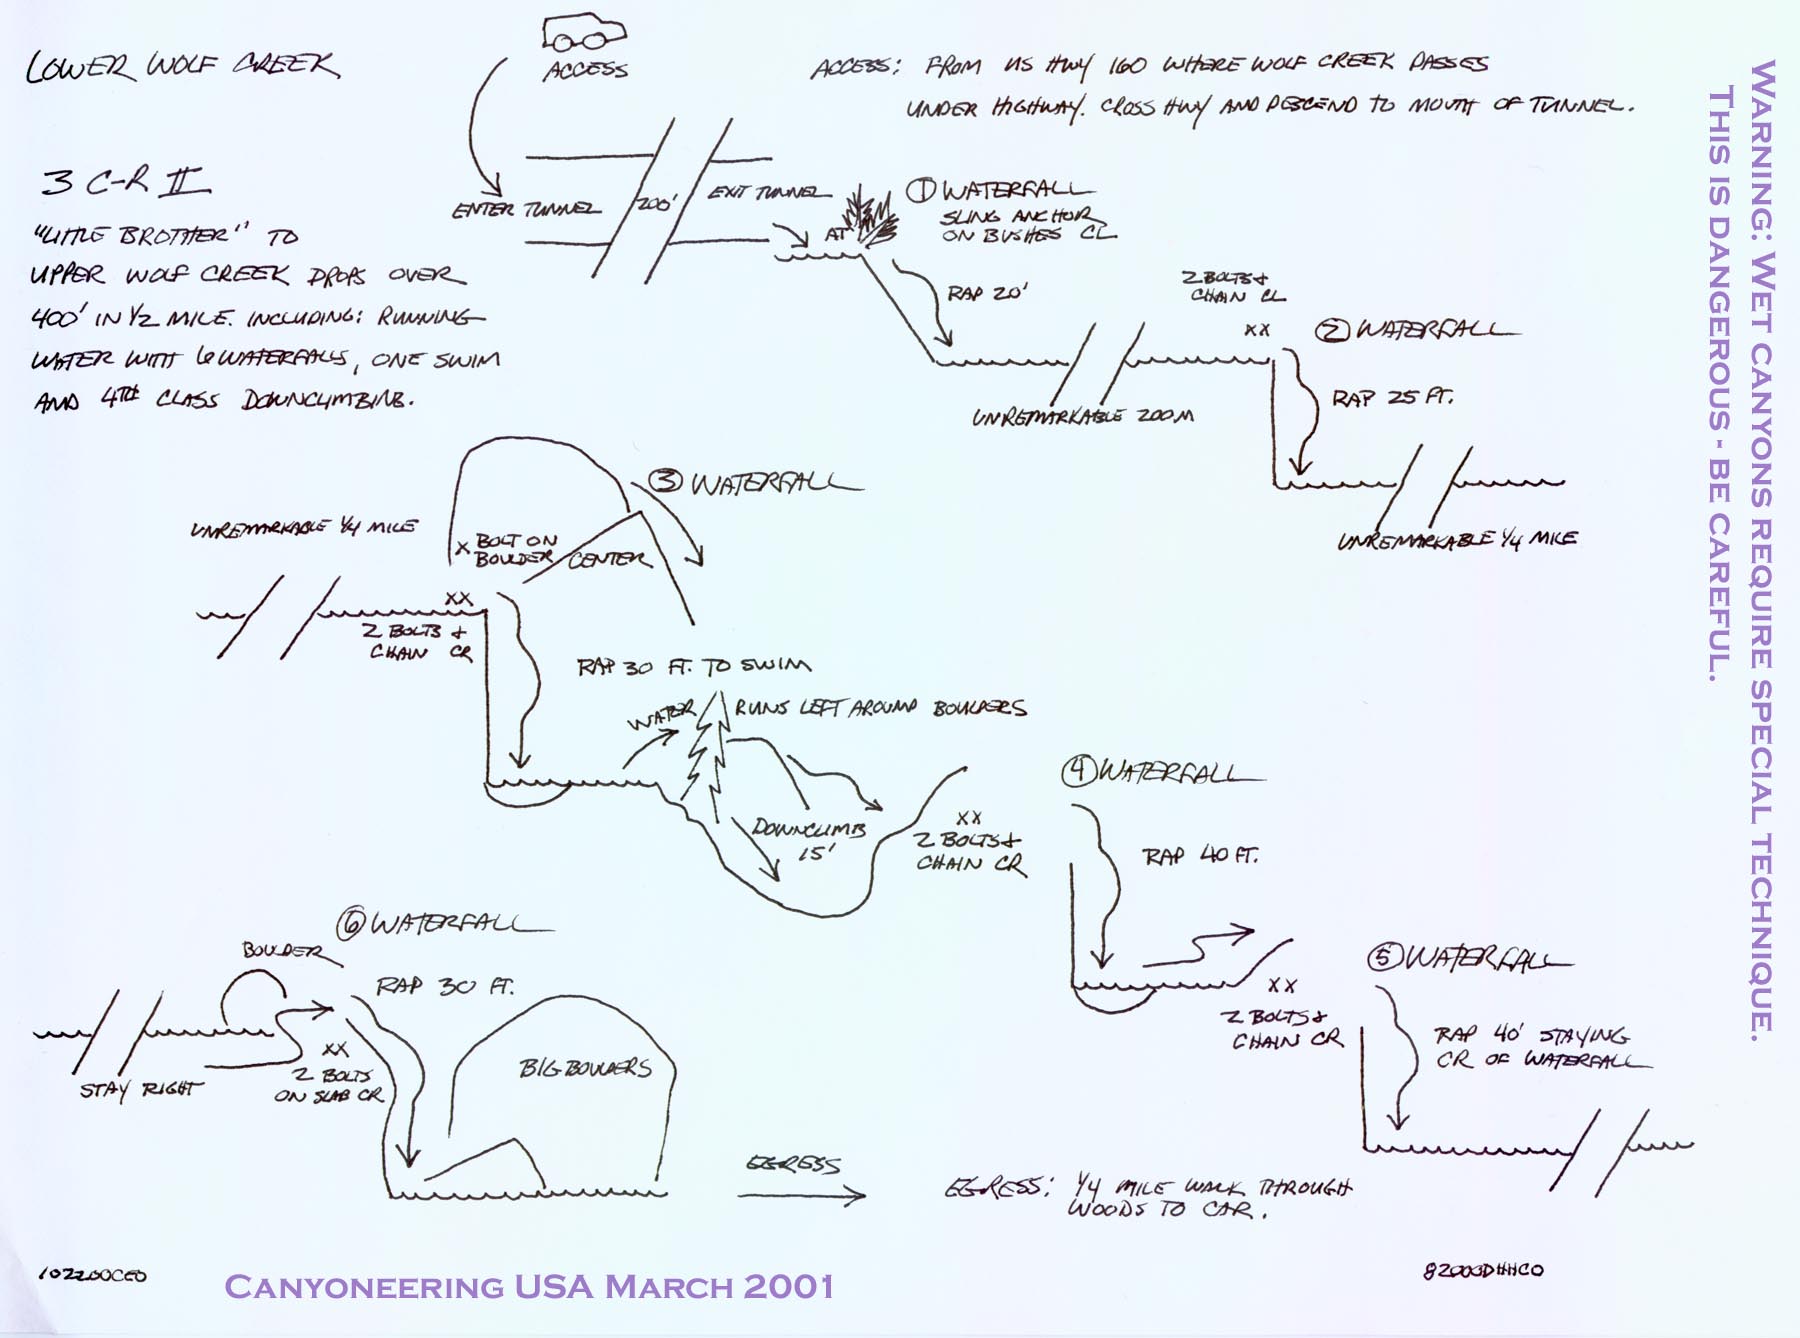 LOWER WOLF CREEK
ACCESS
ACCESS: FROM US HWY 160 WHERE WOLF CREEK PASSES
UNDER HIGHWAY. CROSS HWY AND DESCEND TO MOUTH OF TUNNEL.
3 C-R II
"LITTLE BROTHER" TO
UPPER WOLF CREEK DROPS OVER
400' IN 1/2 MILE. INCLUDING: RUNNING
WATER WITH 6 WATERFALLS, ONE SWIM
AND 4TH CLASS DOWNCLIMBING.
ENTER TUNNEL
200'
EXIT TUNNEL
AT
① WATERFALL
SLING ANCHOR
ON BUSHES CL
RAP 20'
UNREMARKABLE 200M
2 BOLTS +
CHAIN CL
XX
② WATERFALL
RAP 25 FT.
UNREMARKABLE 1/4 MILE
UNREMARKABLE 1/4 MILE
③ WATERFALL
X BOLT ON
BOULDER
CENTER
XX
2 BOLTS +
CHAIN CR
RAP 30 FT. TO SWIM
WATER RUNS LEFT AROUND BOULDERS
DOWNCLIMB
15'
XX
2 BOLTS +
CHAIN CR
④ WATERFALL
RAP 40 FT.
XX
2 BOLTS +
CHAIN CR
⑤ WATERFALL
RAP 40' STAYING
CR OF WATERFALL
⑥ WATERFALL
BOULDER
RAP 30 FT.
STAY RIGHT
XX
2 BOLTS
ON SLAB CR
BIG BOULDERS
EGRESS
EGRESS: 1/4 MILE WALK THROUGH
WOODS TO CAR.
102200CEO
CANYONEERING USA MARCH 2001
82000DHHCO
WARNING: WET CANYONS REQUIRE SPECIAL TECHNIQUE.
THIS IS DANGEROUS - BE CAREFUL.